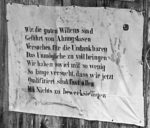 Wir die guten Willens sind
Geführt von Ahnungslosen
Versuchen für die Undankbaren
Das Unmögliche zu vollbringen
Wir haben soviel mit so wenig
So lange versucht, dass wir jetzt
Qualifiziert sind fast alles
Mit Nichts zu bewerkstelligen